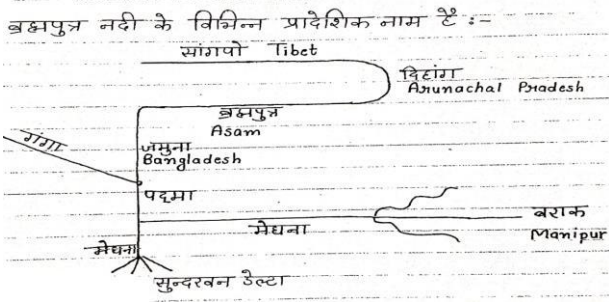 ब्रह्मपुत्र नदी के विभिन्न प्रादेशिक नाम है :-
सांगपो Tibet
दिहांग
Arunachal Pradesh
ब्रह्मपुत्र
Asam
गंगा
जमुना
Bangladesh
पद्मा
मेघना
बराक
Manipur
मेघना
सुन्दरवन डेल्टा